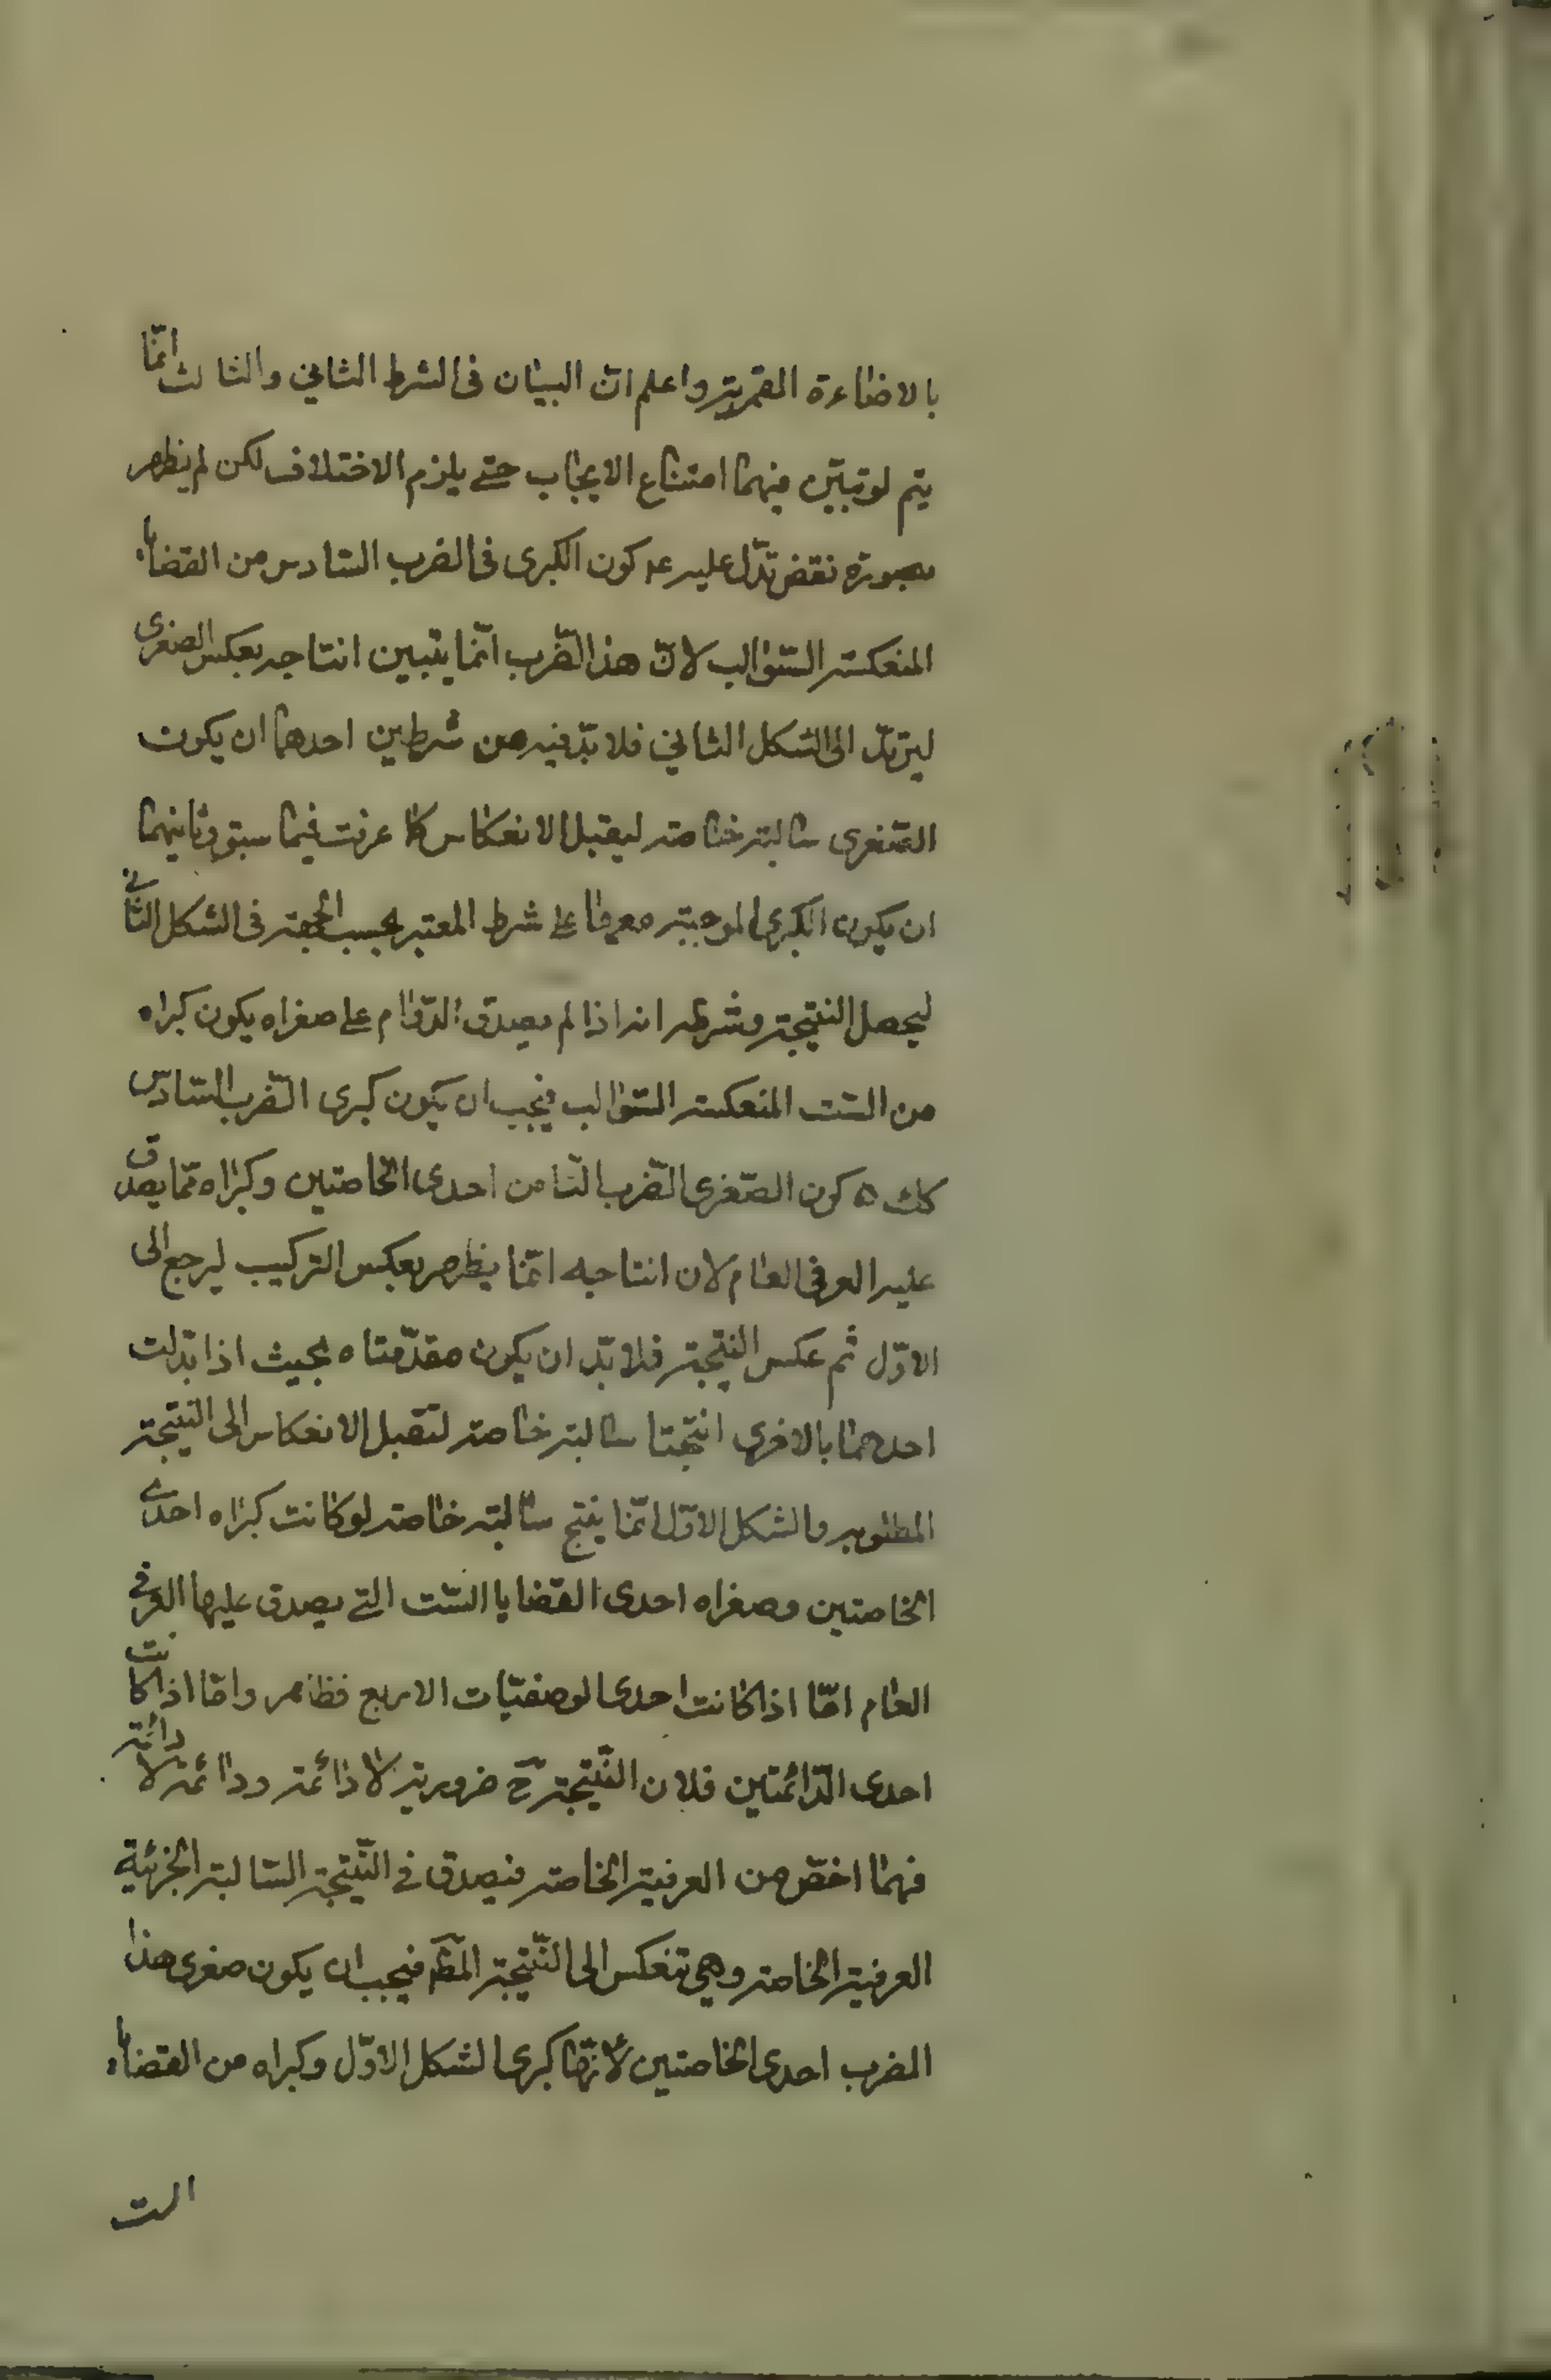 بالاضاءة القمرية واعلم ان البيان فى الشرط الثاني والثالث انما
يتم لو تبيّن فيهما امتناع الايجاب حتى يلزم الاختلاف لكن لم يظهر
بصورة نقض تدّل عليه عد كون الكبرى فى الضرب السّادس من القضايا
المنعكسة السّوالب لانّ هذا الضّرب انّما يتبين انتاجه بعكس الصغرى
ليرتدّ الى الشكل الثاني فلا بدّ فيه من شرطين احدهما ان يكون
الصّغرى سالبة خاصة ليقبل الانعكاس كما عرفت فيما سبق وثانيهما
ان يكون الكبرى الموجبة معها على شرط المعتبر بحسب الجهة فى الشكل الثاني
ليحصل النتيجة وشرطه انه اذا لم يصدق الدّوام على صغراه يكون كبراه
من السّت المنعكسة السّوالب فيجب ان يكون كبرى الضّرب السّادس
كك ه كون الصّغرى الضّرب الثامن احدى الخاصتين وكبراه ممّا يصدق
عليه العرفى العام لان انتاجه انّما يظهر بعكس التركيب ليرجع الى
الاوّل ثم عكس النتيجة فلا بدّ ان يكون مقدّمتاه بحيث اذا بدّلت
احدهما بالاخرى انتجتا سالبة خاصة لتقبل الانعكاس الى النتيجة
المطلوبه والشكل الاوّل انّما ينتج سالبة خاصة لو كانت كبراه احدى
الخاصتين وصغراه احدى القضايا السّت التى يصدق عليها العرفى
العام امّا اذا كانت احدى الوصفيّات الاربع فظاهر وامّا اذا كانت
احدى الدّائمتين فلان النّتيجة ح ضرورية لا دائمة ودائمة لا دائمة
فهما اخصّ من العرفية الخاصة فيصدق فى النّتيجة السّالبة الجزئية
العرفية الخاصة وهى تنعكس الى النّتيجة المط فيجب ان يكون صغرى هذا
الضرب احدى الخاصتين لأنّها كبرى الشكل الاوّل وكبراه من القضايا
الست